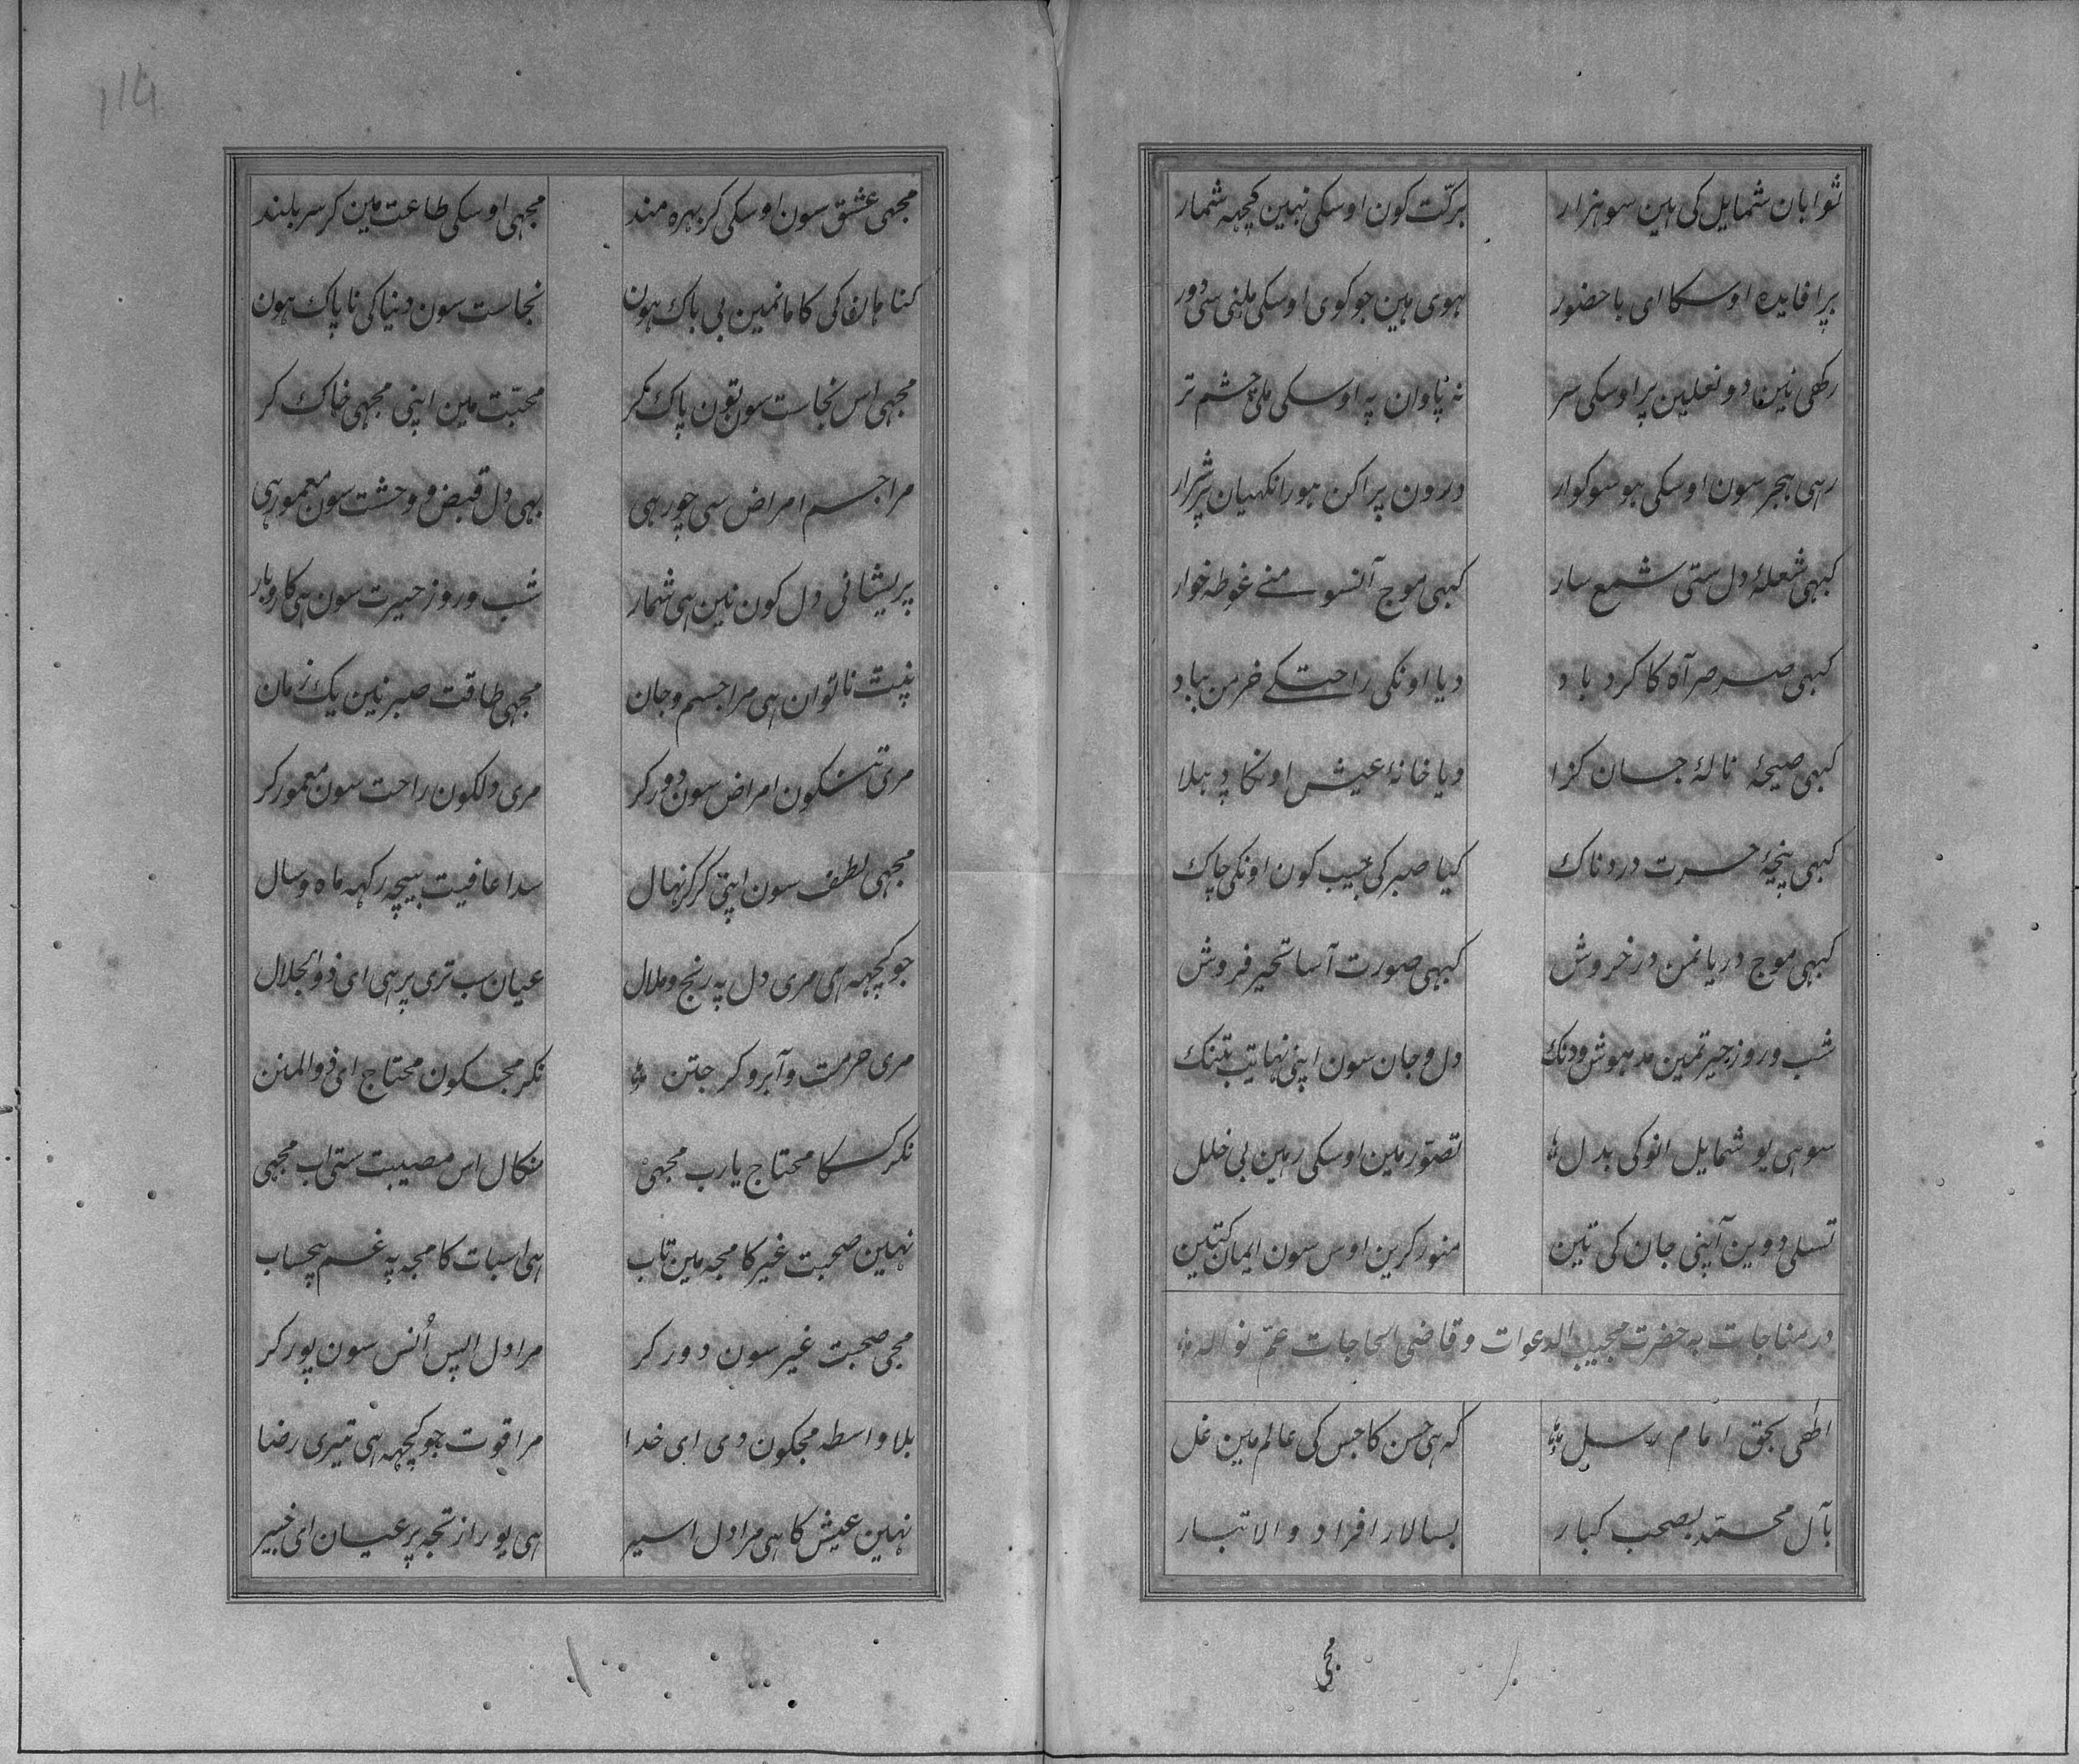 ثوابان شمایل کی هین سو هزار برکّت کون اوسکی نهین کچهه شمار
برا فایده اوسکا ای با حضور هوی هین جو کوی اوسکی ملنی سی دور
رکهی نین دو نعلین پر اوسکی سر نه پاوان په اوسکی ملی چشم تر
رهی هجر سون اوسکی هو سوکوار درون پر اکن هور انکهیان پر شرار
کبهی شعلهٔ دل ستی شمع سار کبهی موج آنسو منے غوطه خوار
کبهی صرصر آه کا کرد باد دیا اونکی راحت کے خرمن بباد
کبهی صیحهٔ نالهٔ جان کزا دیا خانهٔ عیش اونکا دهلا
کبهی پنجهٔ حسرت دردناک کیا صبر کی جیب کون اونکی چاک
کبهی موج دریا نمن در خروش کبهی صورت آسا تحیر فروش
شب و روز حیرتمین مدهوش و دنک دل و جان سون اپنی نهایت بتنک
سو هی یو شمایل انو کی بدل تصوّر مین اوسکی رهین بی خلل
تسلی دوین آپنی جان کی تین منور کرین اوس سون ایمان کتین
در مناجات به حضرت مجیب الدعوات و قاضی الحاجات عمّ نواله
الهی بحق امام رسل که هی حسن کا جس کی عالم مین غل
بآل محمّد بصحب کبار بسالار افراد والا تبار
مجی
۱۱۴
مجهی عشق سون اوسکی کر بهره مند مجهی اوسکی طاعت مین کر سر بلند
کناهان کی کامانمین بی باک هون نجاست سون دنیا کی ناپاک هون
مجهی اس نجاست سون تون پاک کر محبّت مین اپنی مجهی خاک کر
مرا جسم امراض سی چور هی بهی دل قبض و وحشت سون معمور هی
پریشانی دل کون نین هی شمار شب و روز حیرت سون هی کاروبار
نپٹ ناتوان هی مرا جسم و جان مجهی طاقت صبر نین یک زمان
مری تنکون امراض سون دور کر مری دلکون راحت سون معمور کر
مجهی لطف سون اپنی کر کر نهال سدا عافیت بیچه رکهه ماه و سال
جو کچهه هی مری دل په رنج و ملال عیان سب تری پر هی ای ذوالجلال
مری حرمت و آبرو کر جتن نکر مجکون محتاج ای ذوالمنن
نکر کسکا محتاج یا رب مجهی نکال اس مصیبت ستی اب مجهی
نهین صحبت غیر کا مجه مین تاب هی اسبات کا مجه په غم بیحساب
مجی صحبت غیر سون دور کر مرا دل اپس اُنس سون پور کر
بلا واسطه مجکون دی ای خدا مرا قوت جو کچهه هی تیری رضا
نهین عیش کا هی مرا دل اسیر هی یو راز تجه پر عیان ای خبیر